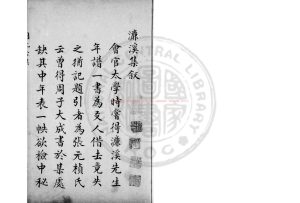 濂溪集叙
會官太學時嘗得濂溪先生
年譜一書為友人借去竟失
之猶記題引者為張元禎氏
云曾得周子大成書於某處
缺其中年表一帙欲檢中秘